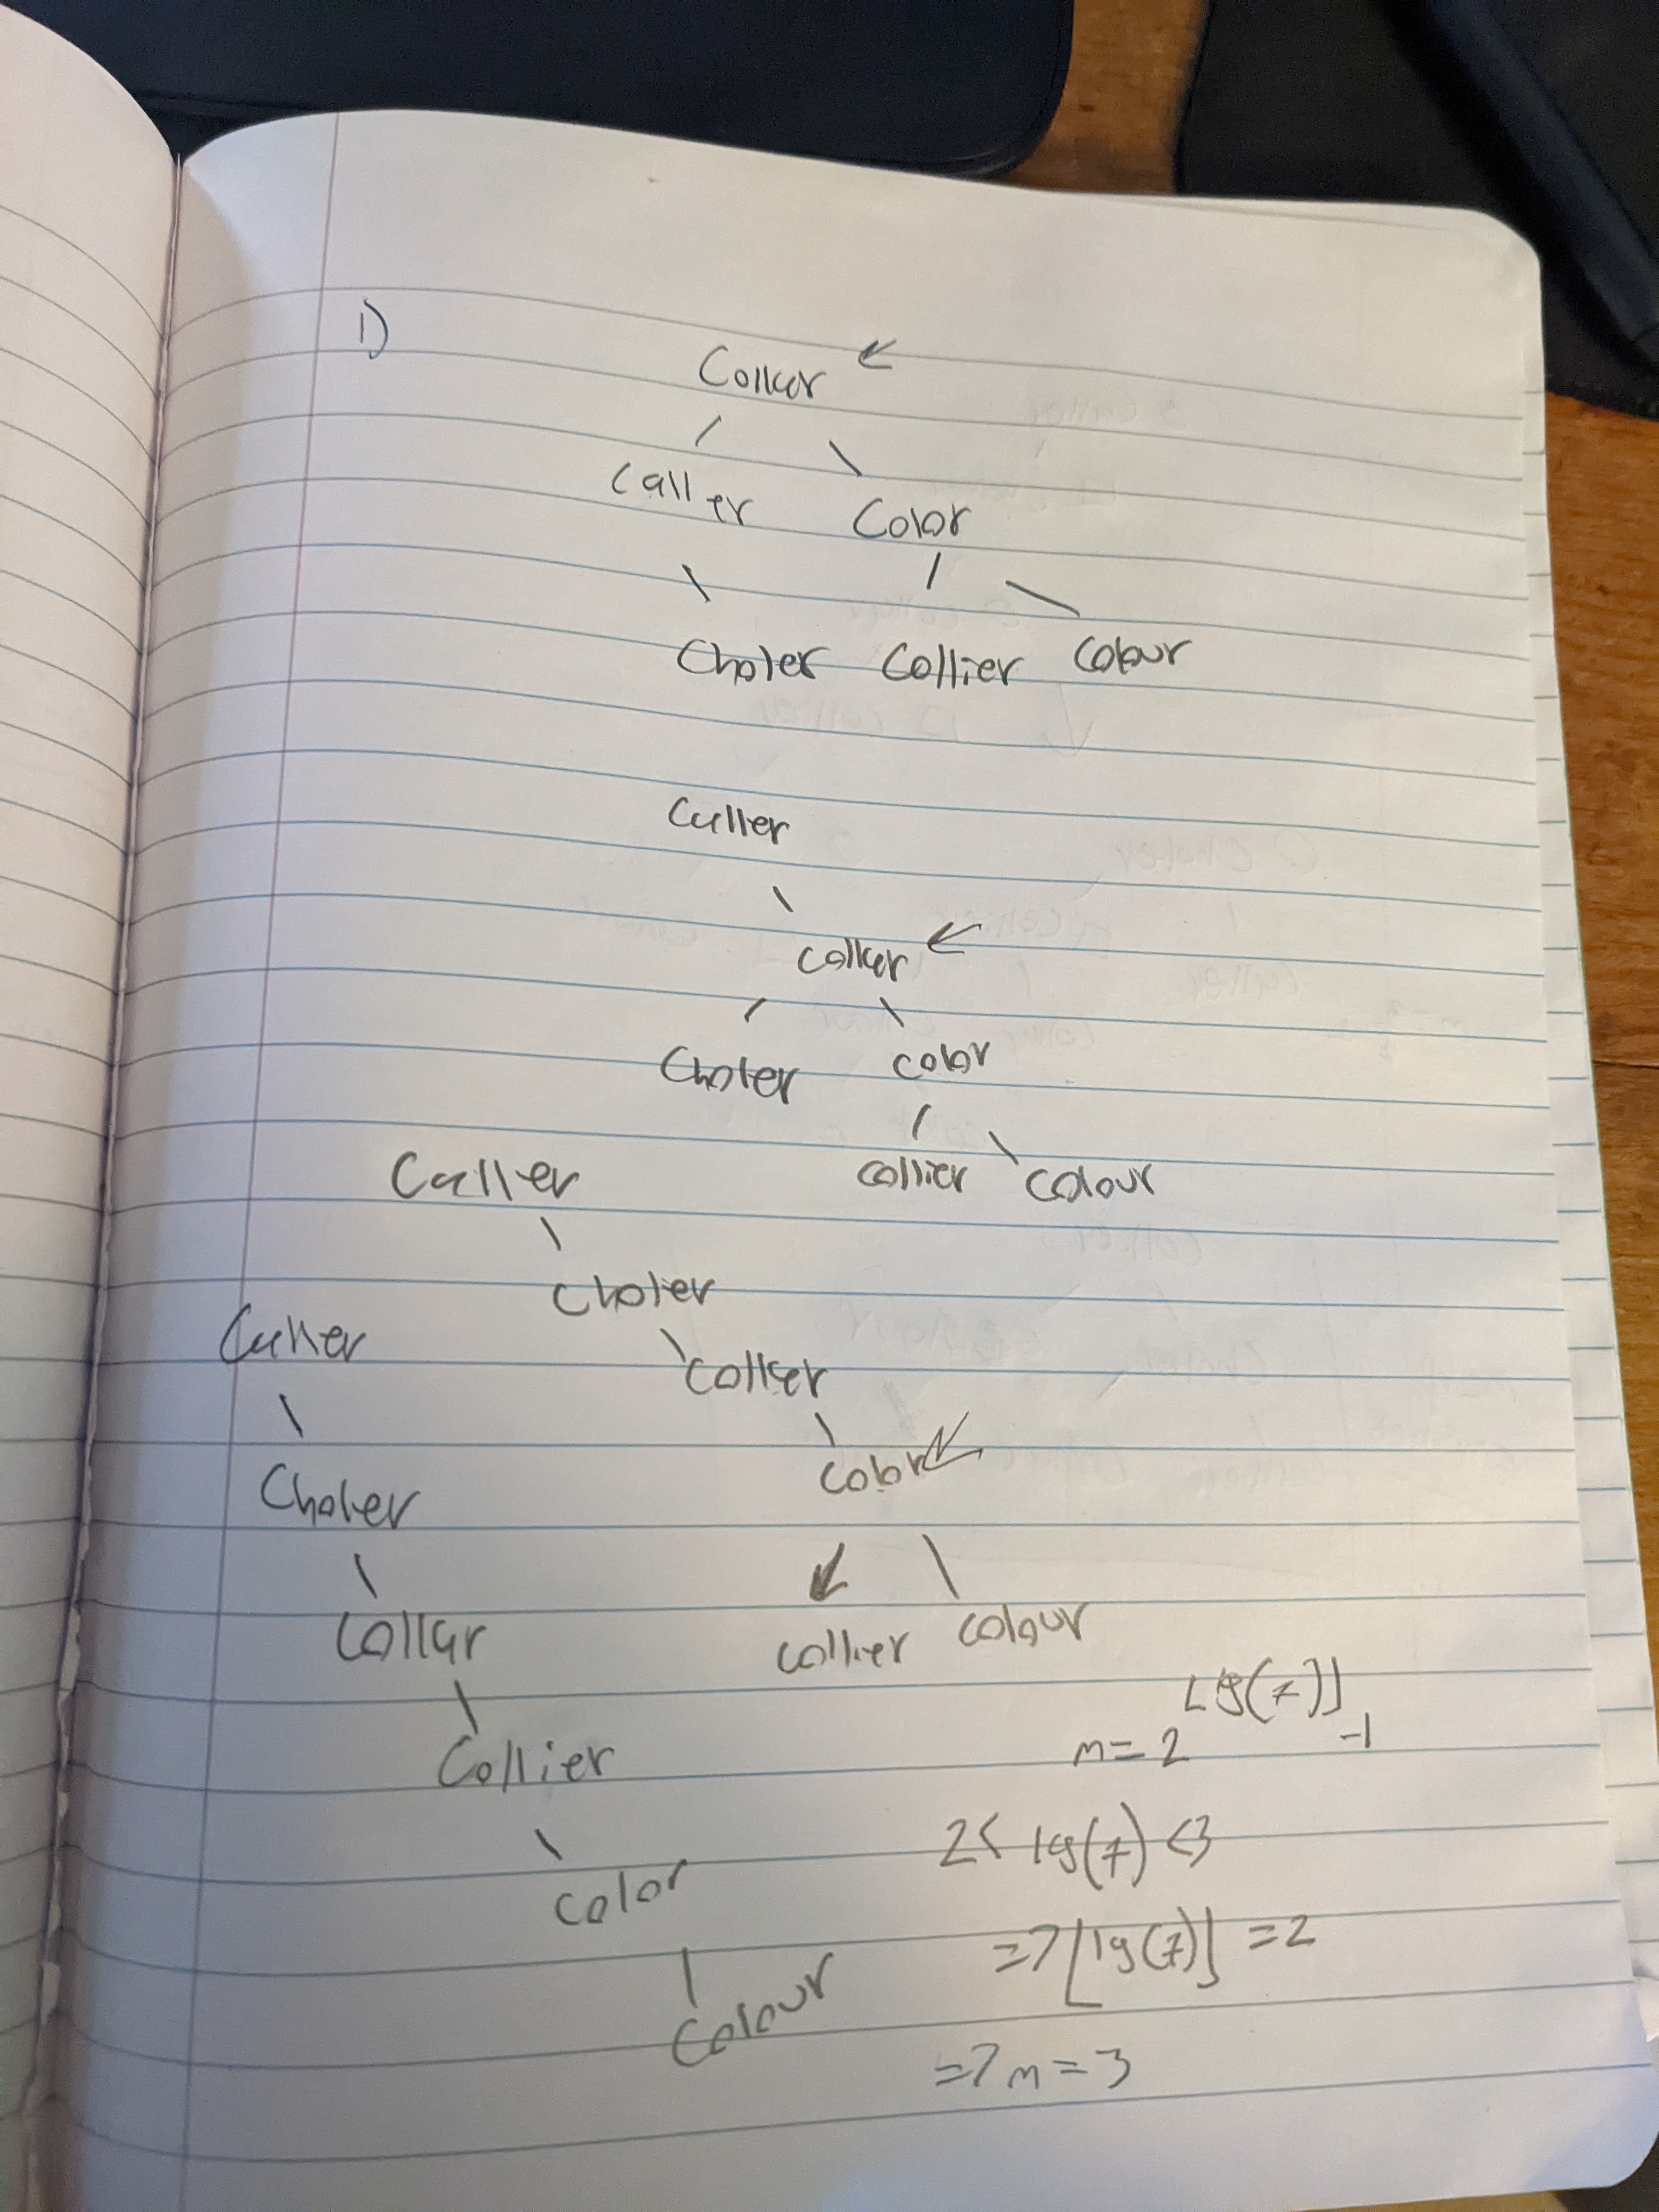 1)
Collar
Caller Color
Choler Collier Colour
Caller
collar
Choler color
collier colour
Caller
choler
Caller
collar
color
Choler
collier colour
Collar
Collier
color
Colour
m = 2^⌊lg(7)⌋ -1
2 < lg(7) < 3
=> ⌊lg(7)⌋ = 2
=> m = 3